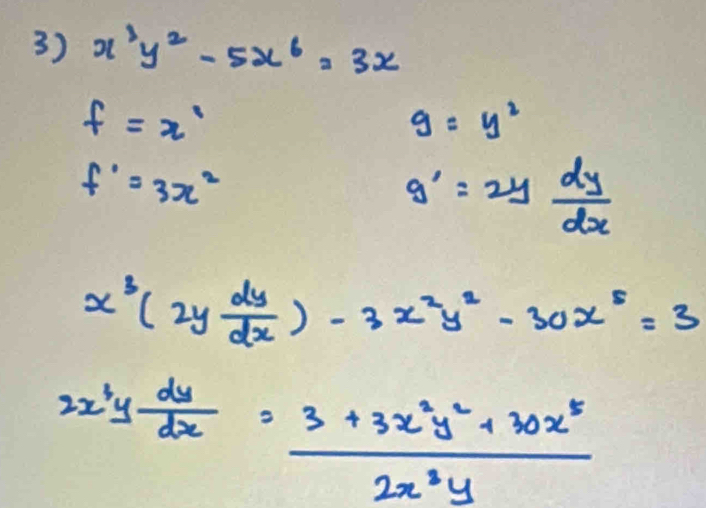 3) x³y² - 5x⁶ = 3x
f = x³ g = y²
f' = 3x² g' = 2y dy/dx
x³(2y dy/dx) - 3x²y² - 30x⁵ = 3
2x³y dy/dx = (3 + 3x²y² + 30x⁵)/(2x³y)